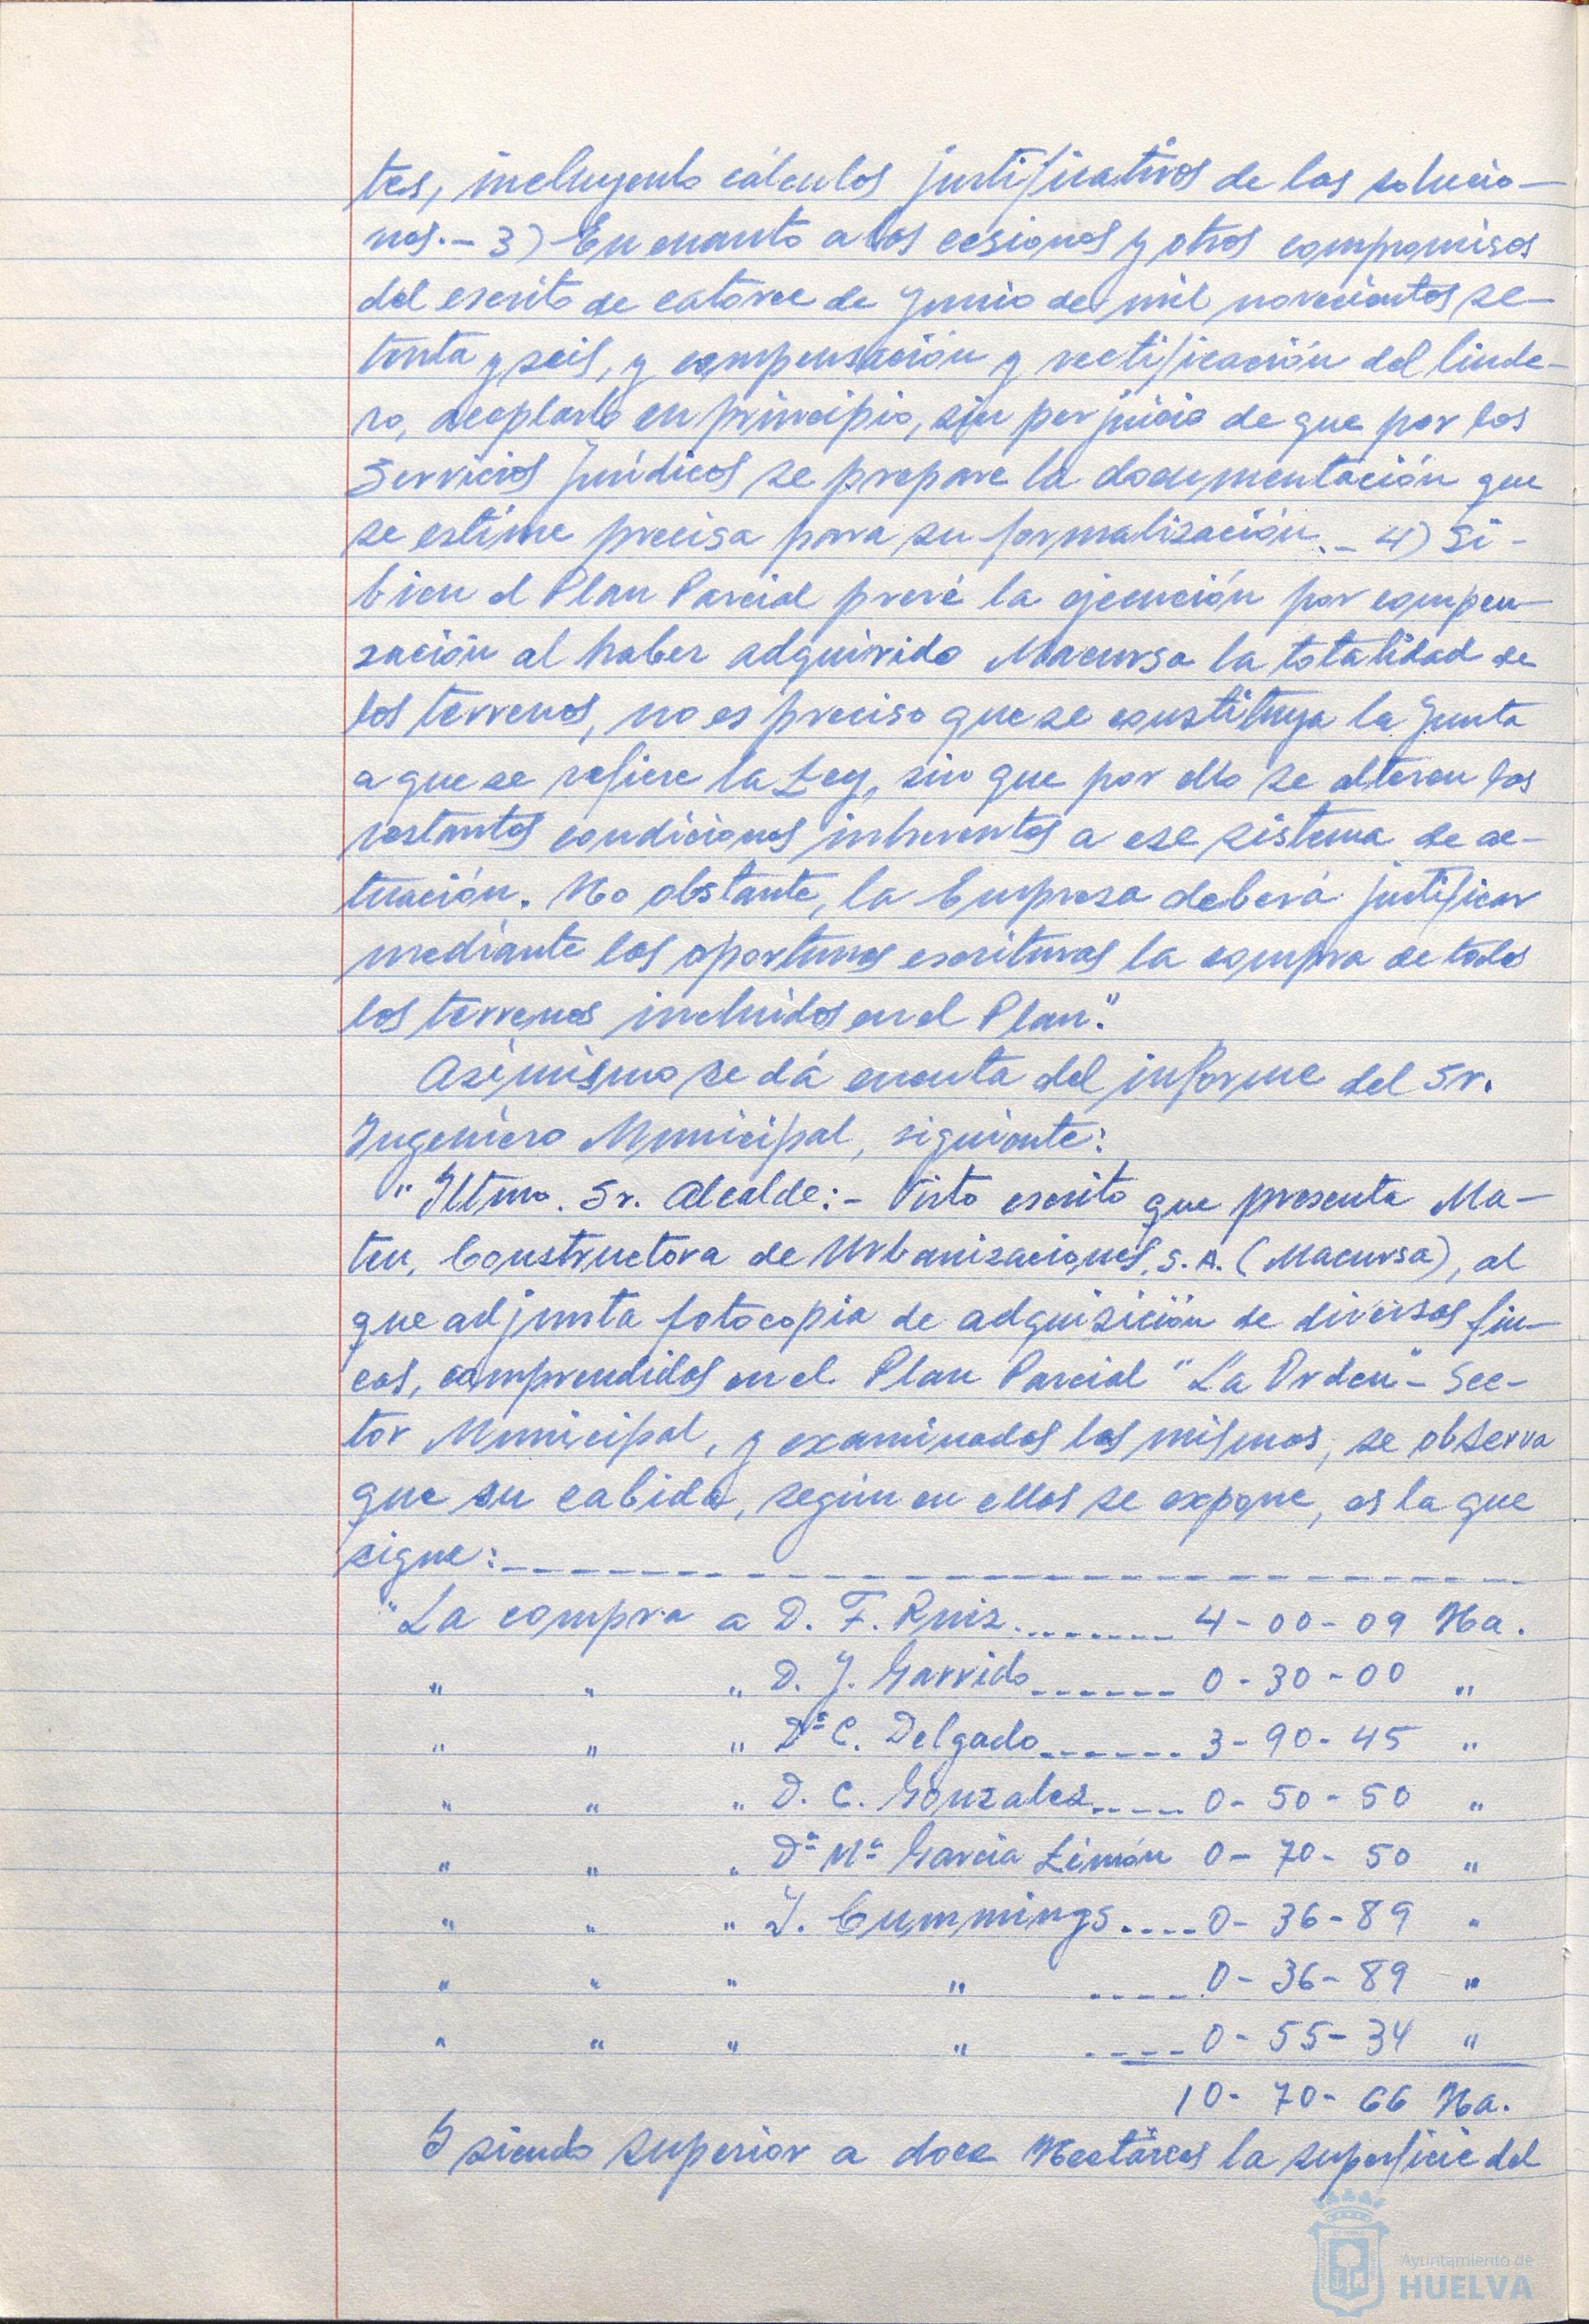 tes, incluyendo cálculos justificativos de las solucio-
nes.- 3) En cuanto a las cesiones y otros compromisos
del escrito de catorce de Junio de mil novecientos se-
tenta y seis, y compensación y rectificación del linde-
ro, aceptarlo en principio, sin perjuicio de que por los
Servicios Jurídicos se prepare la documentación que
se estime precisa para su formalización.- 4) Si-
bien el Plan Parcial prevé la ejecución por compen-
sación al haber adquirido Macursa la totalidad de
los terrenos, no es preciso que se constituya la Junta
a que se refiere la Ley, sin que por ello se alteren las
restantes condiciones inherentes a ese sistema de ac-
tuación. No obstante, la Empresa deberá justificar
mediante las oportunas escrituras la compra de todos
los terrenos incluidos en el Plan".
Asimismo se dá cuenta del informe del Sr.
Ingeniero Municipal, siguiente:
"Iltmo. Sr. Alcalde:- Visto escrito que presenta Ma-
teu, Constructora de Urbanizaciones, S.A. (Macursa), al
que adjunta fotocopia de adquisición de diversas fin-
cas, comprendidas en el Plan Parcial "La Orden"- Sec-
tor Municipal, y examinadas las mismas, se observa
que su cabida, según en ellas se expone, es la que
sigue:- - - - - - - - - - - - - - - - - -
"La compra a D. F. Ruiz........ 4-00-09 Ha.
" " " D. J. Garrido------ 0-30-00 "
" " " Dª C. Delgado------ 3-90-45 "
" " " D. C. Gonzalez---- 0-50-50 "
" " " Dª Mª Garcia Limón 0-70-50 "
" " " J. Cummings.---- 0-36-89 "
" " " " ----- 0-36-89 "
" " " " ---- 0-55-34 "
10-70-66 Ha.
Y siendo superior a doce Hectáreas la superficie del
Ayuntamiento de
HUELVA